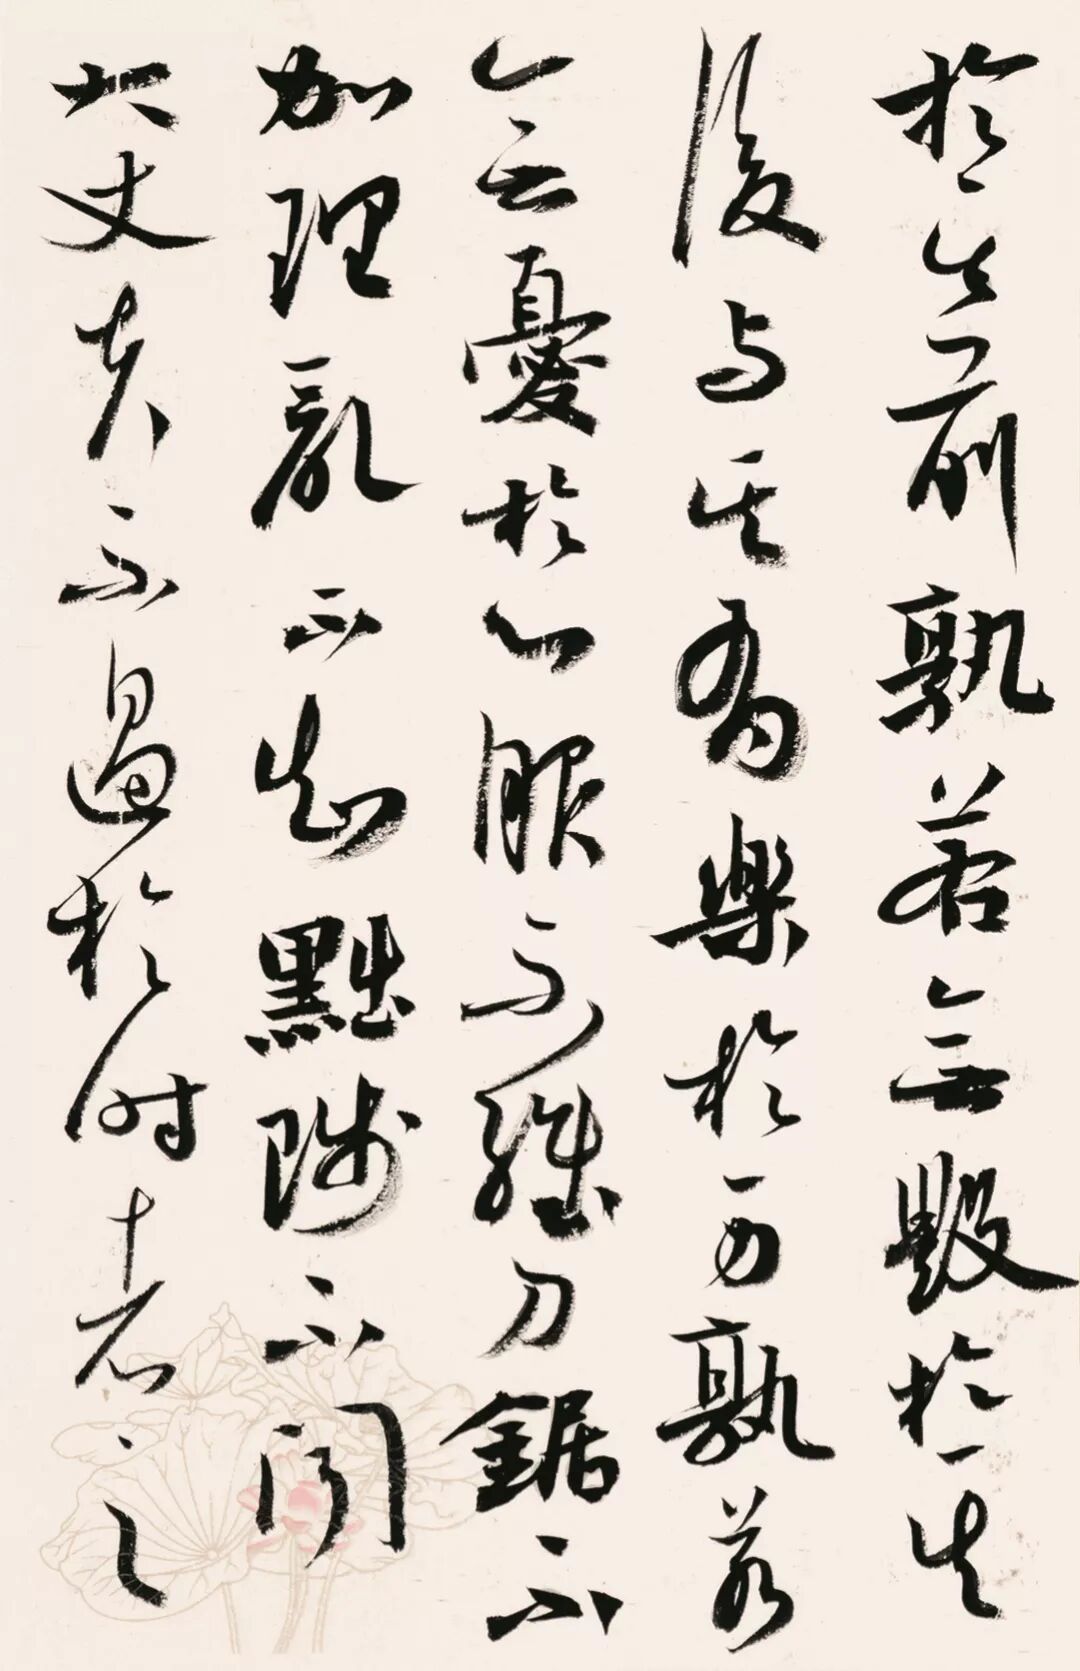 於其前孰若無毀於其
後与其有樂於身孰若
無憂於心服不維刀鋸不
加理亂不知黜陟不聞
大丈夫不遇於时者之